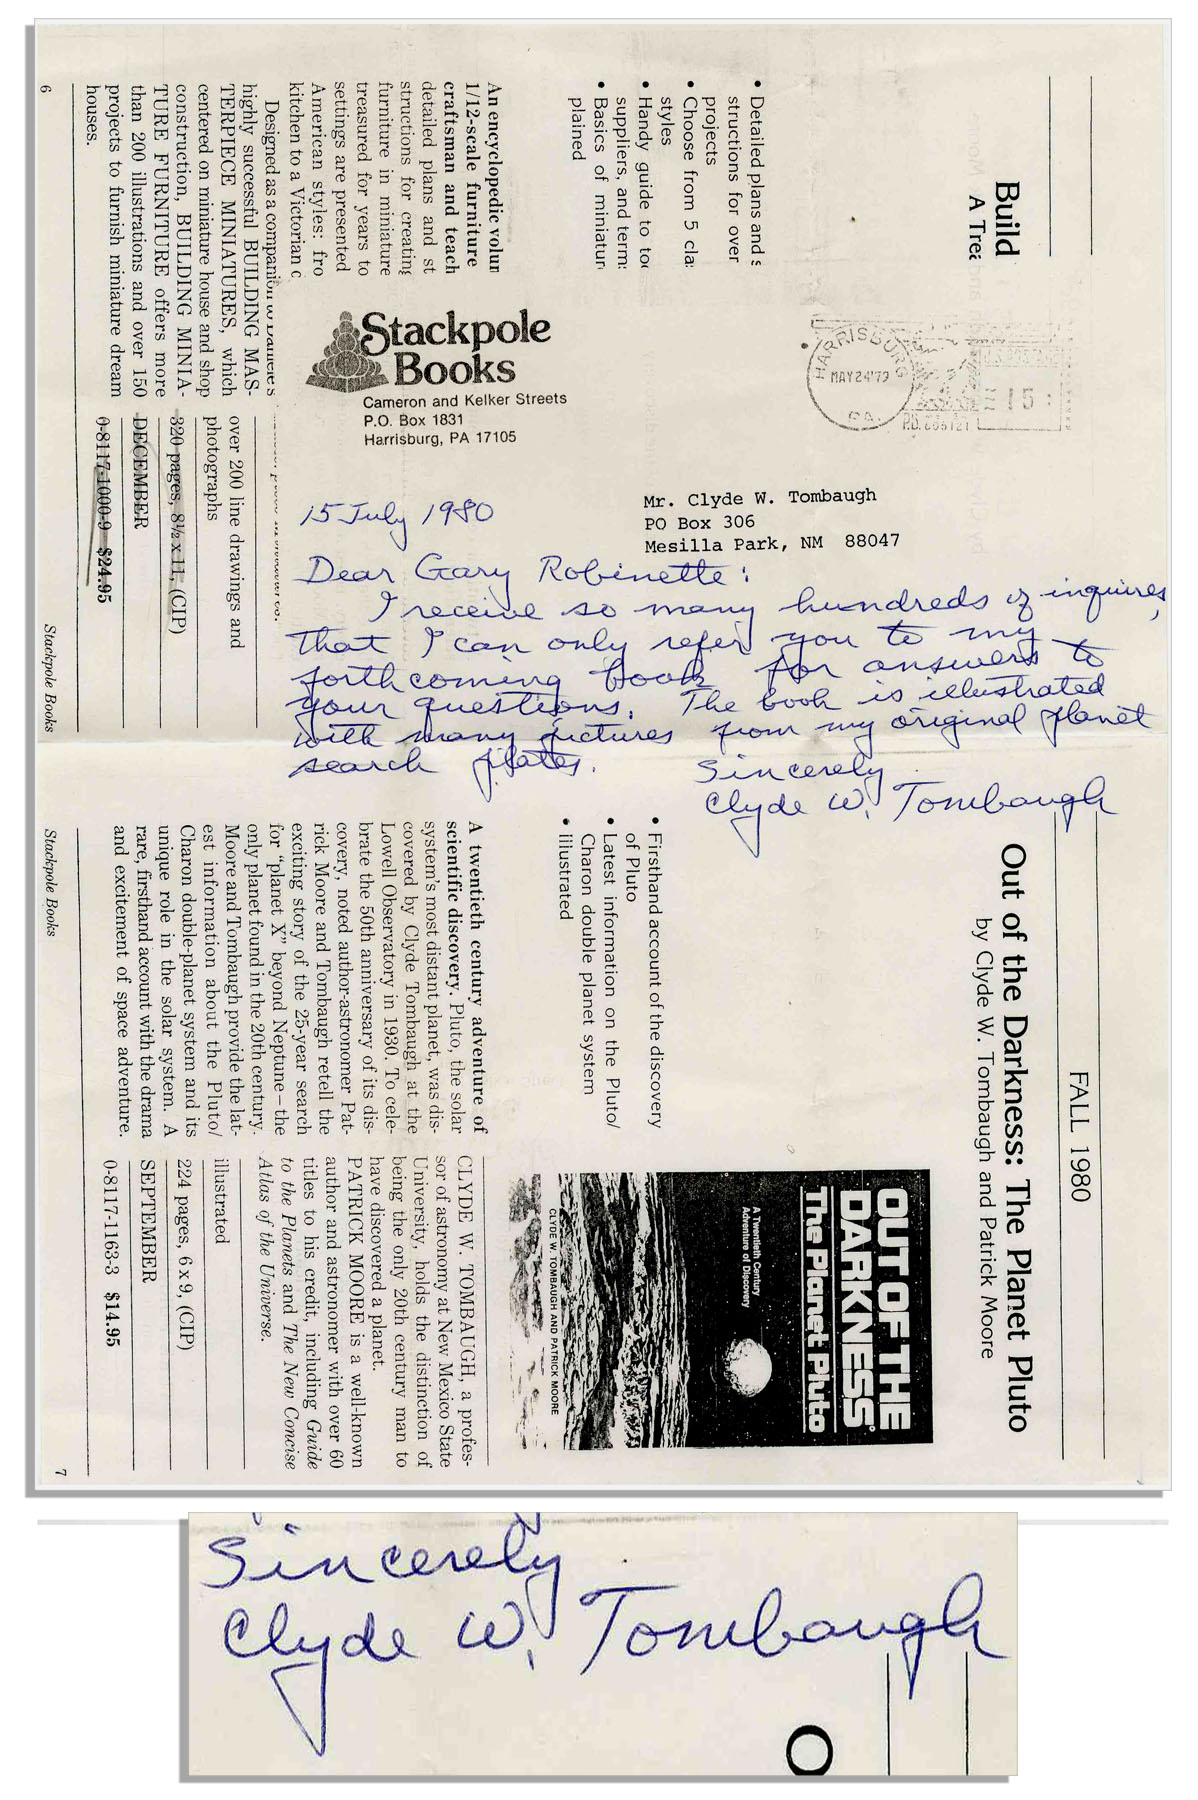 Build
A Trea
• Detailed plans and s
structions for over
projects
• Choose from 5 cla
styles
• Handy guide to to
suppliers, and term
• Basics of miniatur
plained
An encyclopedic volum
1/12-scale furniture
craftsman and teach
detailed plans and st
structions for creating
furniture in miniature
treasured for years to
settings are presented
American styles: fro
kitchen to a Victorian c
Designed as a companion to Daniele's
highly successful BUILDING MAS-
TERPIECE MINIATURES, which
centered on miniature house and shop
construction, BUILDING MINIA-
TURE FURNITURE offers more
than 200 illustrations and over 150
projects to furnish miniature dream
houses.
over 200 line drawings and
photographs
320 pages, 8½ x 11, (CIP)
DECEMBER
0-8117-1000-9 $24.95
6
Stackpole Books
Stackpole
Books
Cameron and Kelker Streets
P.O. Box 1831
Harrisburg, PA 17105
HARRISBURG
MAY 24 '79
PA.
15
Mr. Clyde W. Tombaugh
PO Box 306
Mesilla Park, NM 88047
15 July 1980
Dear Gary Robinette:
I receive so many hundreds of inquires,
that I can only refer you to my
forthcoming book for answers to
your questions. The book is illustrated
with many pictures from my original planet
search plates.
Sincerely
Clyde W. Tombaugh
FALL 1980
Out of the Darkness: The Planet Pluto
by Clyde W. Tombaugh and Patrick Moore
• Firsthand account of the discovery
of Pluto
• Latest information on the Pluto/
Charon double planet system
• Illustrated
OUT OF THE
DARKNESS
The Planet Pluto
A Twentieth Century
Adventure of Discovery
CLYDE W. TOMBAUGH AND PATRICK MOORE
A twentieth century adventure of
scientific discovery. Pluto, the solar
system's most distant planet, was dis-
covered by Clyde Tombaugh at the
Lowell Observatory in 1930. To cele-
brate the 50th anniversary of its dis-
covery, noted author-astronomer Pat-
rick Moore and Tombaugh retell the
exciting story of the 25-year search
for "planet X" beyond Neptune–the
only planet found in the 20th century.
Moore and Tombaugh provide the lat-
est information about the Pluto/
Charon double-planet system and its
unique role in the solar system. A
rare, firsthand account with the drama
and excitement of space adventure.
CLYDE W. TOMBAUGH, a profes-
sor of astronomy at New Mexico State
University, holds the distinction of
being the only 20th century man to
have discovered a planet.
PATRICK MOORE is a well-known
author and astronomer with over 60
titles to his credit, including Guide
to the Planets and The New Concise
Atlas of the Universe.
illustrated
224 pages, 6 x 9, (CIP)
SEPTEMBER
0-8117-1163-3 $14.95
Stackpole Books
7
Sincerely
Clyde W. Tombaugh
O